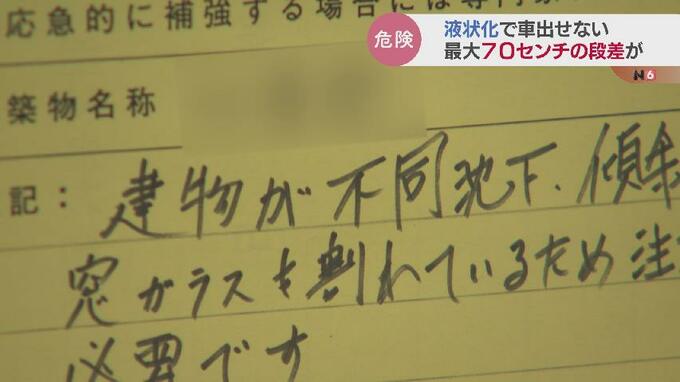 応急的に補強する場合には専門家
危険
液状化で車出せない
最大70センチの段差が
N6
築物名称
記：建物が不同沈下、傾斜
窓ガラスも割れているため注
必要です